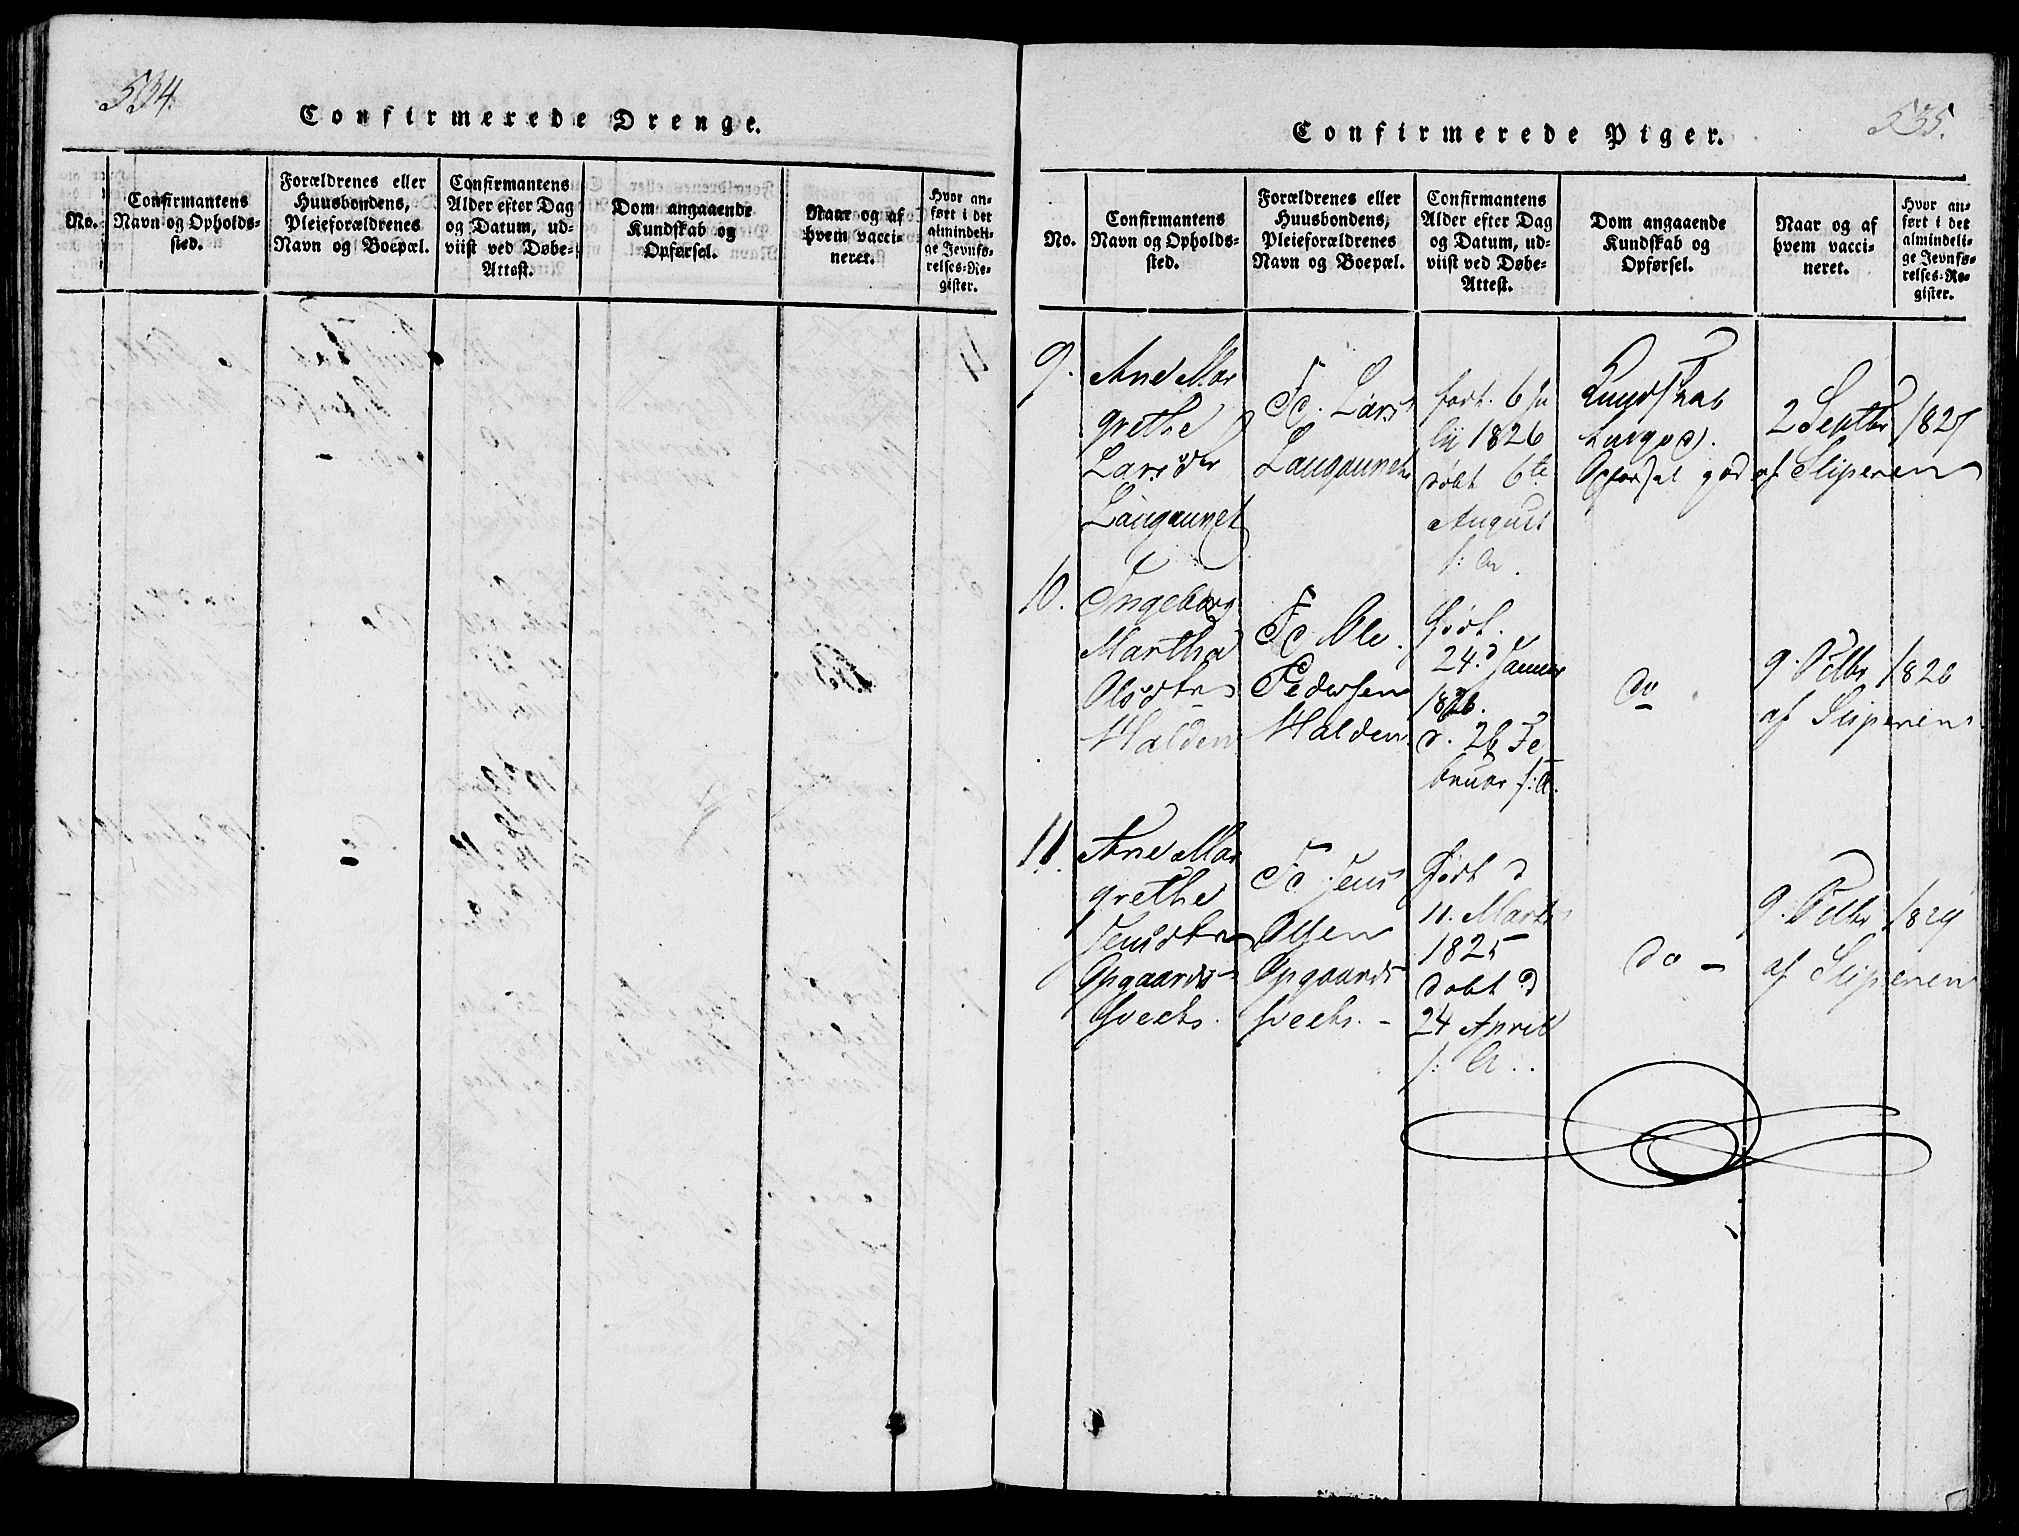 534.
Confirmerede Drenge.
No.
Confirmantens
Navn og Opholds-
sted.
Forældrenes eller
Huusbondens,
Pleieforældrenes
Navn og Boepæl.
Confirmantens
Alder efter Dag
og Datum, ud-
viist ved Døbe-
Attest.
Dom angaaende
Kundskab og
Opførsel.
Naar og af
hvem vacci-
neret.
Hvor an-
ført i det
almindeli-
ge Jevnfø-
relses-Re-
gister.
535.
Confirmerede Piger.
No.
Confirmantens
Navn og Opholds-
sted.
Forældrenes eller
Huusbondens,
Pleieforældrenes
Navn og Boepæl.
Confirmantens
Alder efter Dag
og Datum, ud-
viist ved Døbe-
Attest.
Dom angaaende
Kundskab og
Opførsel.
Naar og af
hvem vacci-
neret.
Hvor an-
ført i det
almindeli-
ge Jevnfø-
relses-Re-
gister.
9.
Ane Mar
grethe
Larsdtr
Laugaunet
F. Lars
Laugaunet
født. 6 Ju
lii 1826
døbt 6te
August
s: A.
Kundskab
Opførsel god
2 Septbr 1827
af Sliperen
10.
Ingeborg
Martha
Olsdtr
Halden
F. Ole
Pedersen
Halden
født.
24. Januar
1826.
d. 26 Fe
bruar s: A.
do
9. Octbr 1826
af Sliperen
11.
Ane Mar
grethe
Jensdtr
Opgaards
F. Jens
Olsen
Opgaards
Født d
11. Marts
1825
døbt d
24 April
s: A.
do -
9. Octbr 1829
af Sliperen